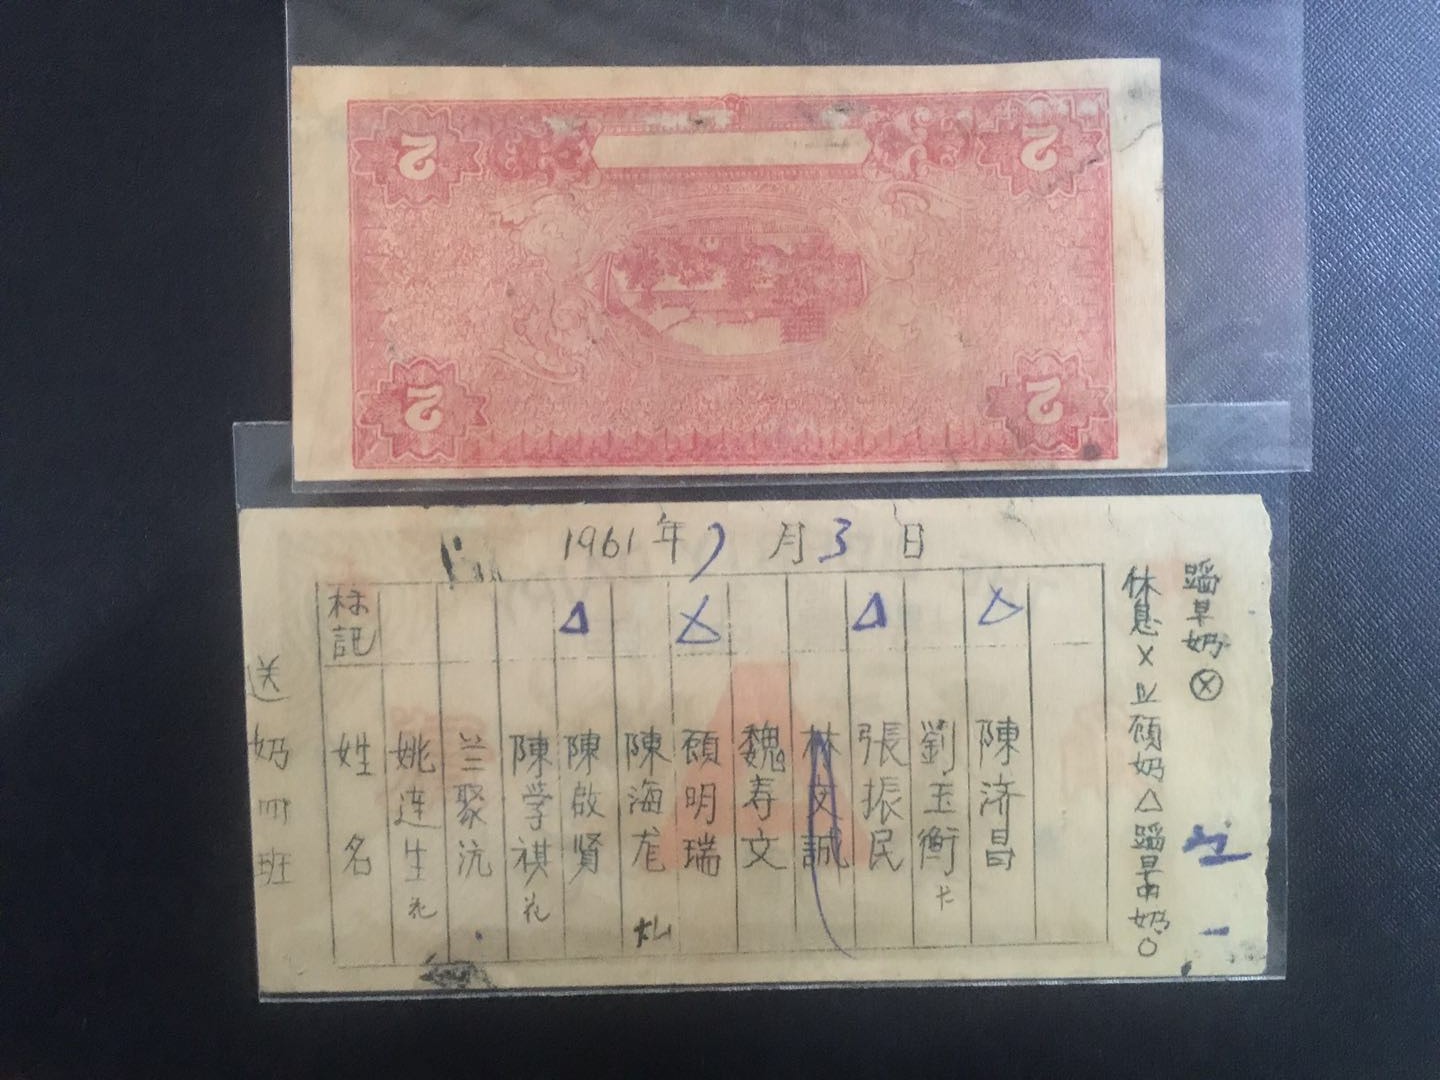 2
2
2
2
1961年7月3日
蹈早奶 ⊗
休息× 立顾奶△ 蹈早中奶○
陳济昌
劉玉衡 卡
張振民
林文誠
魏寿文
顾明瑞
陳海龙
陳啟贤
陳学祺 花
兰聚沆
姚连生 花
标記 姓名
送奶四班